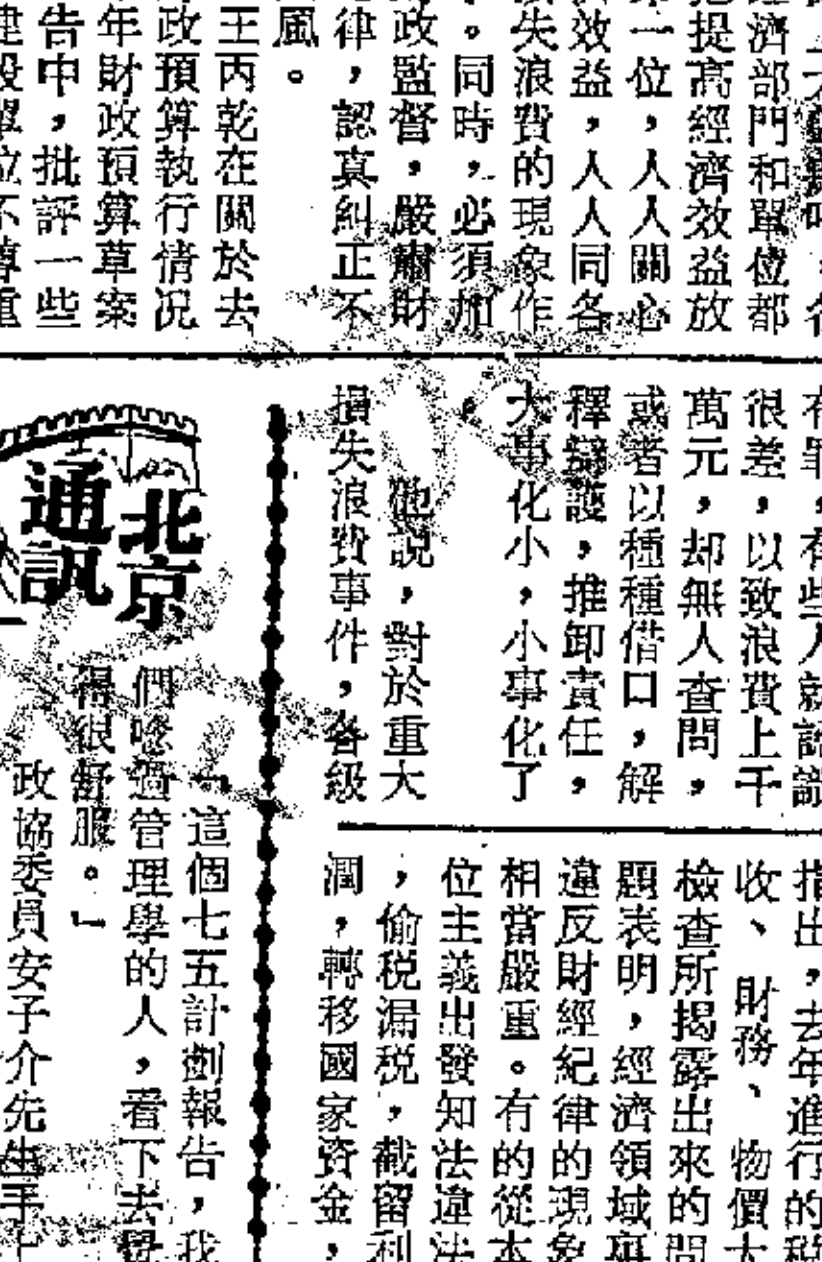 經濟部門和單位都
把提高經濟效益放
一位，人人關心
效益，人人同各
失浪費的現象作
。同時，必須加
政監督，嚴肅財
律，認真糾正不
風。
王丙乾在關於去
政預算執行情况
年財政預算草案
告中，批評一些
建設單位不尊重
有罪，有些人就認識
很差，以致浪費上千
萬元，却無人查問，
或者以種種借口，解
釋辯護，推卸責任，
大事化小，小事化了
。
他說，對於重大
損失浪費事件，各級
指出，去年進行的税
收、財務、物價大
檢查所揭露出來的問
題表明，經濟領域裏
違反財經紀律的現象
相當嚴重。有的從本
位主義出發知法違法
，偷税漏税，截留利
潤，轉移國家資金，
北京
通訊
「這個七五計劃報告，我
們唸過管理學的人，看下去覺
得很舒服。」
政協委員安子介先生手上